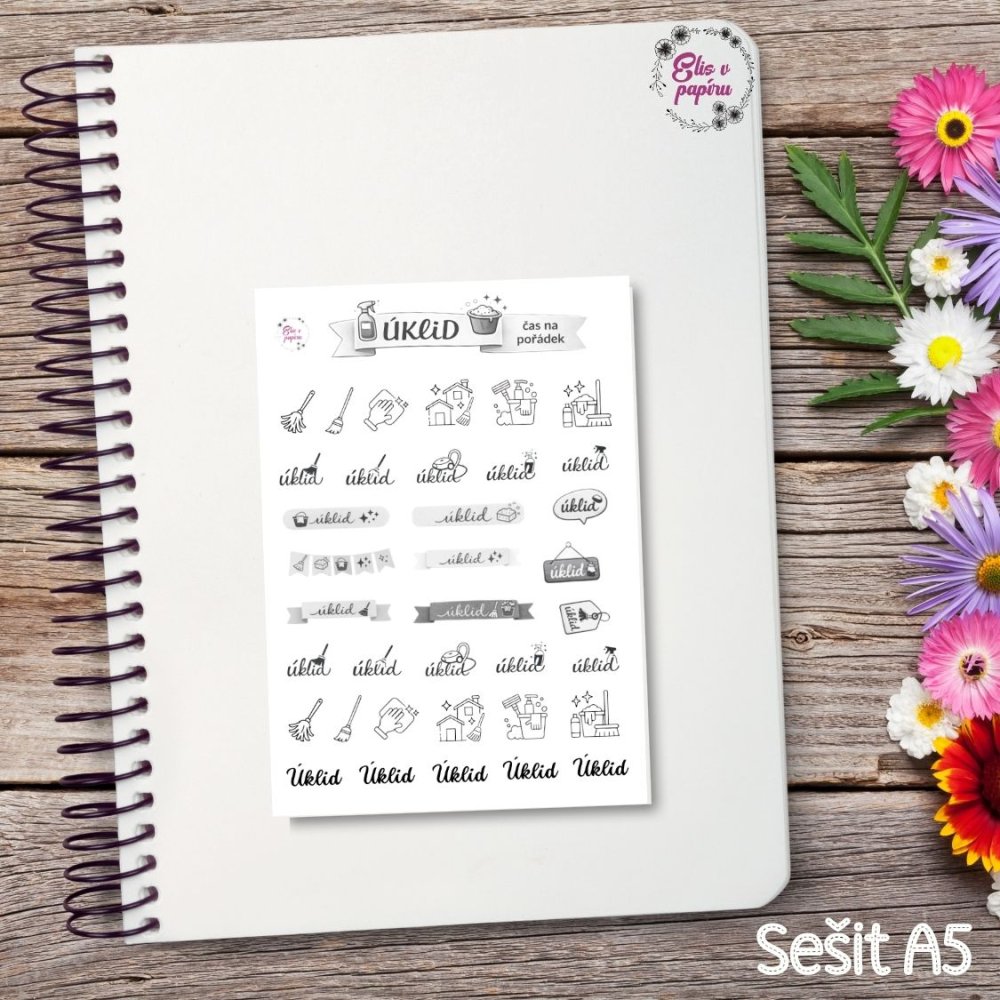 Elis v
papíru
Elis v
papíru
ÚKLID
čas na
pořádek
úklid úklid úklid úklid úklid
úklid úklid úklid
úklid úklid
úklid úklid úklid
úklid úklid úklid úklid úklid
Úklid Úklid Úklid Úklid Úklid
Sešit A5